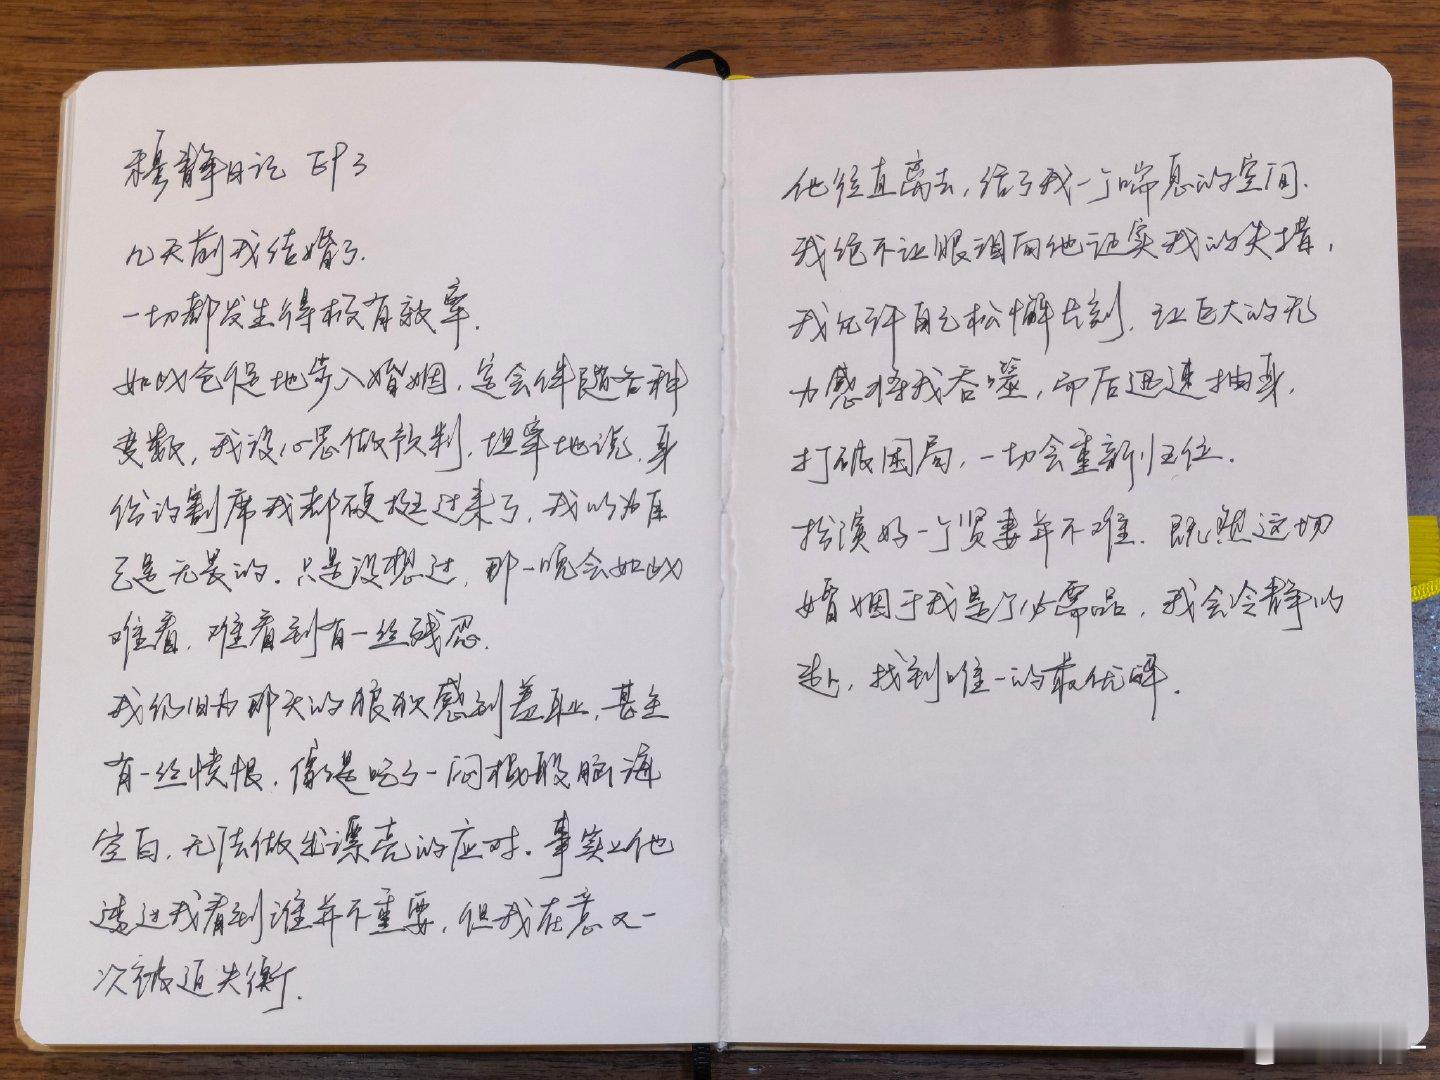 穆静日记 EP3
几天前我结婚了.
一切都发生得极有效率.
如此仓促地步入婚姻,定会伴随各种
变数,我没心思做预判,坦率地说,身
份的割席我都硬挺过来了,我以为自
己是无畏的.只是没想过,那一晚会如此
难看,难看到有一丝残忍.
我仍旧为那天的狼狈感到羞耻,甚至
有一丝愤恨.像是吃了一闷棍般脑海
空白,无法做出漂亮的应对.事实上他
透过我看到谁并不重要,但我在意又一
次被迫失衡.
他径直离去,给了我一个喘息的空间.
我绝不让眼泪向他证实我的失措,
我允许自己松懈片刻,让巨大的无
力感将我吞噬,而后迅速抽身,
打破困局,一切会重新归位.
扮演好一个贤妻并不难.既然这切
婚姻于我是个必需品,我会冷静以
赴,找到唯一的最优解.